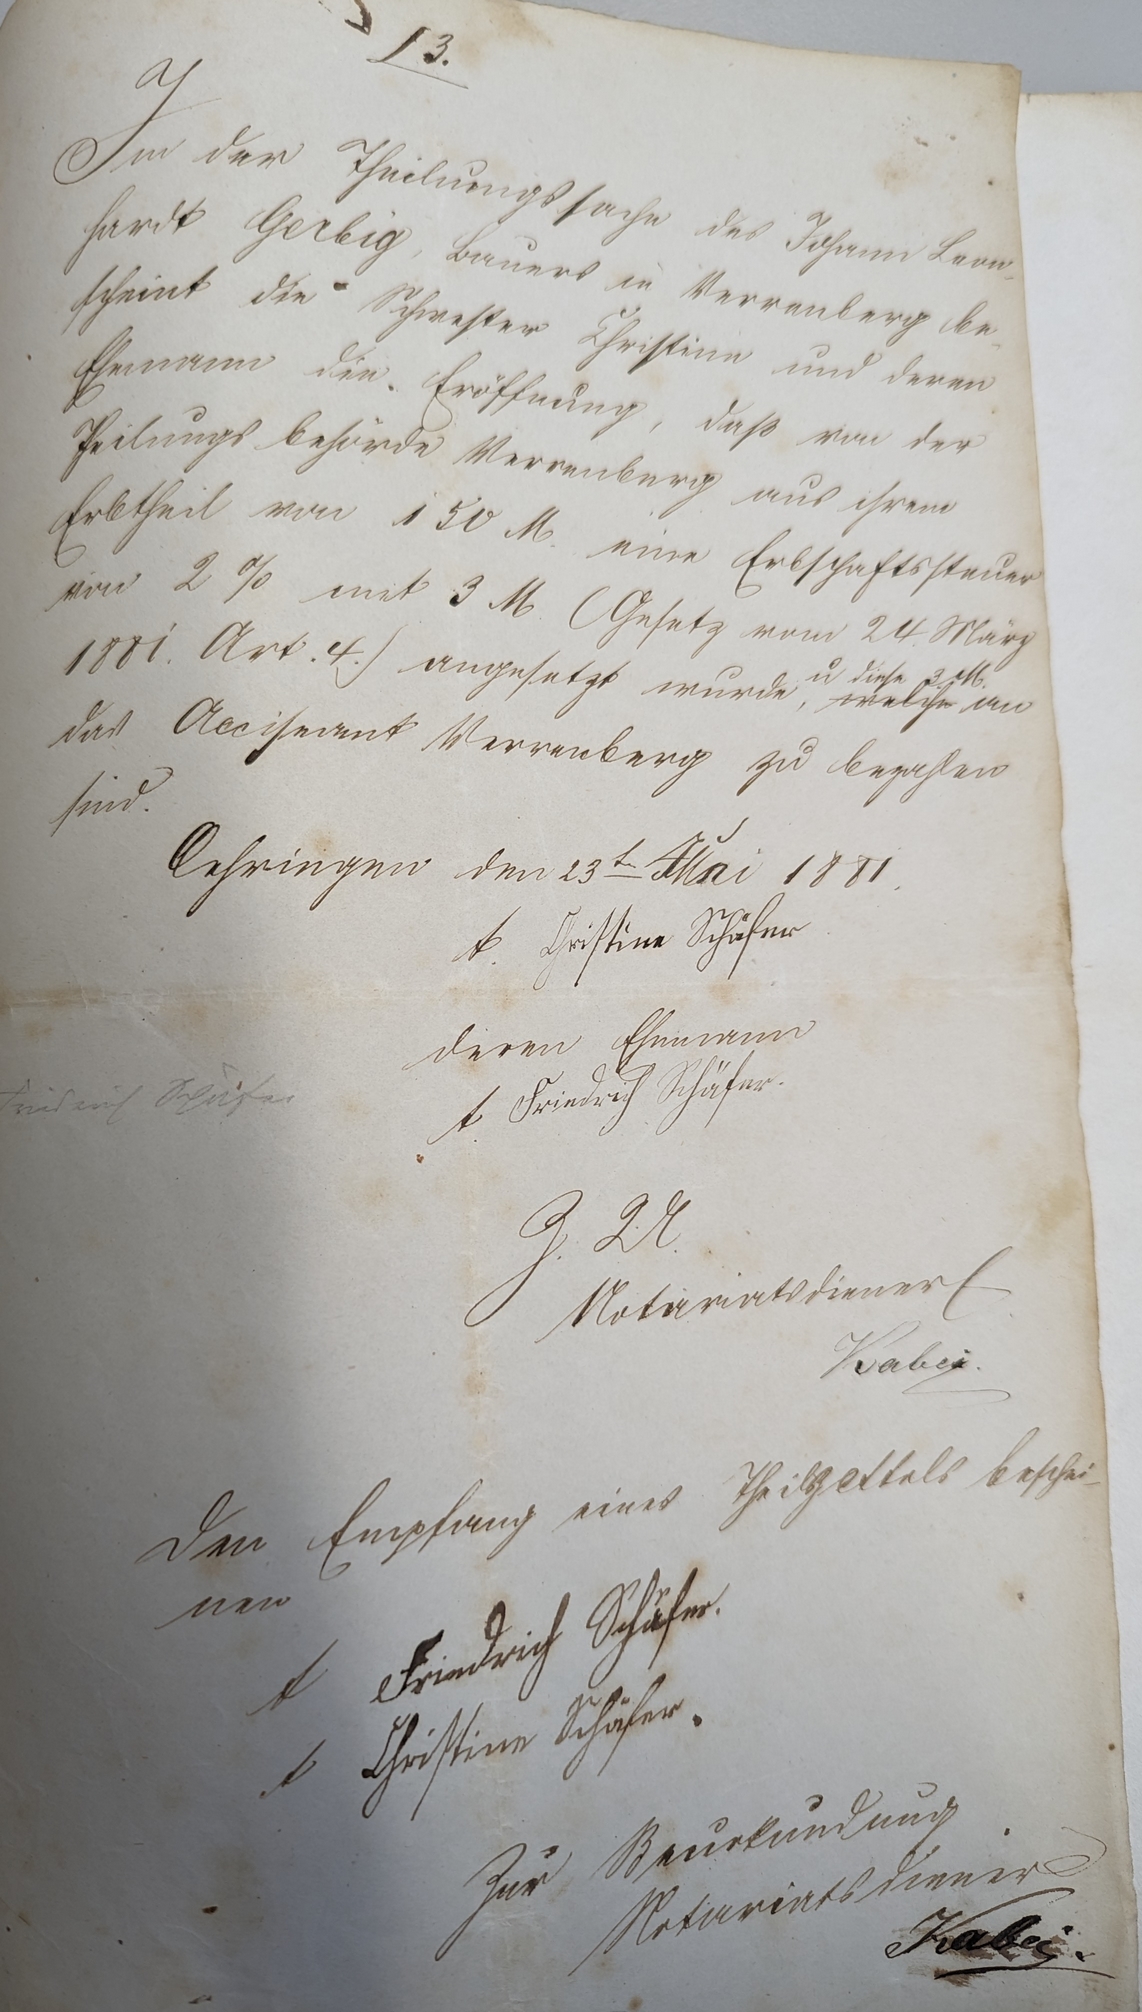 13.
In der Theilungssache des Johann Leon-
hardt Gerbig, Bauers in Verrenberg be-
scheint die Schwester Christine und deren
Ehemann die Eröffnung, daß von der
Theilungsbehörde Verrenberg aus ihrem
Erbtheil von 150 M. eine Erbschaftssteuer
von 2 % mit 3 M. (Gesetz vom 24. März
1881. Art. 4.) angesetzt wurde, welche an
u diese 3 M.
das Acciseamt Verrenberg zu bezahlen
sind.
Oehringen den 23t Mai 1881.
t. Christine Schäfer
deren Ehemann
Friedrich Schäfer
t Friedrich Schäfer.
Z. U.
Notariatsdiener
Den Empfang eines Theilzettels beschei-
nen
t Friedrich Schäfer.
t Christine Schäfer.
Zur Beurkundung
Notariatsdiener